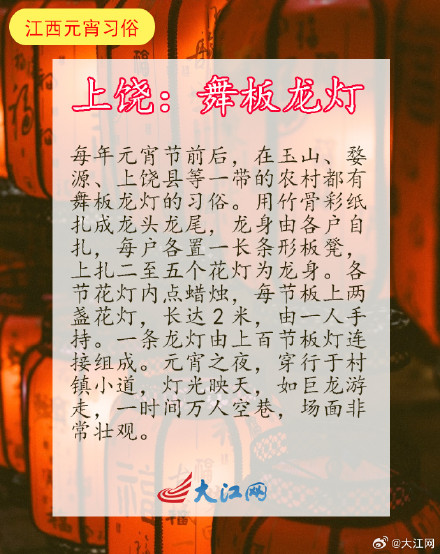 江西元宵习俗
上饶：舞板龙灯
每年元宵节前后，在玉山、婺
源、上饶县等一带的农村都有
舞板龙灯的习俗。用竹骨彩纸
扎成龙头龙尾，龙身由各户自
扎，每户各置一长条形板凳，
上扎二至五个花灯为龙身。各
节花灯内点蜡烛，每节板上两
盏花灯，长达2米，由一人手
持。一条龙灯由上百节板灯连
接组成。元宵之夜，穿行于村
镇小道，灯光映天，如巨龙游
走，一时间万人空巷，场面非
常壮观。
大江网
@大江网